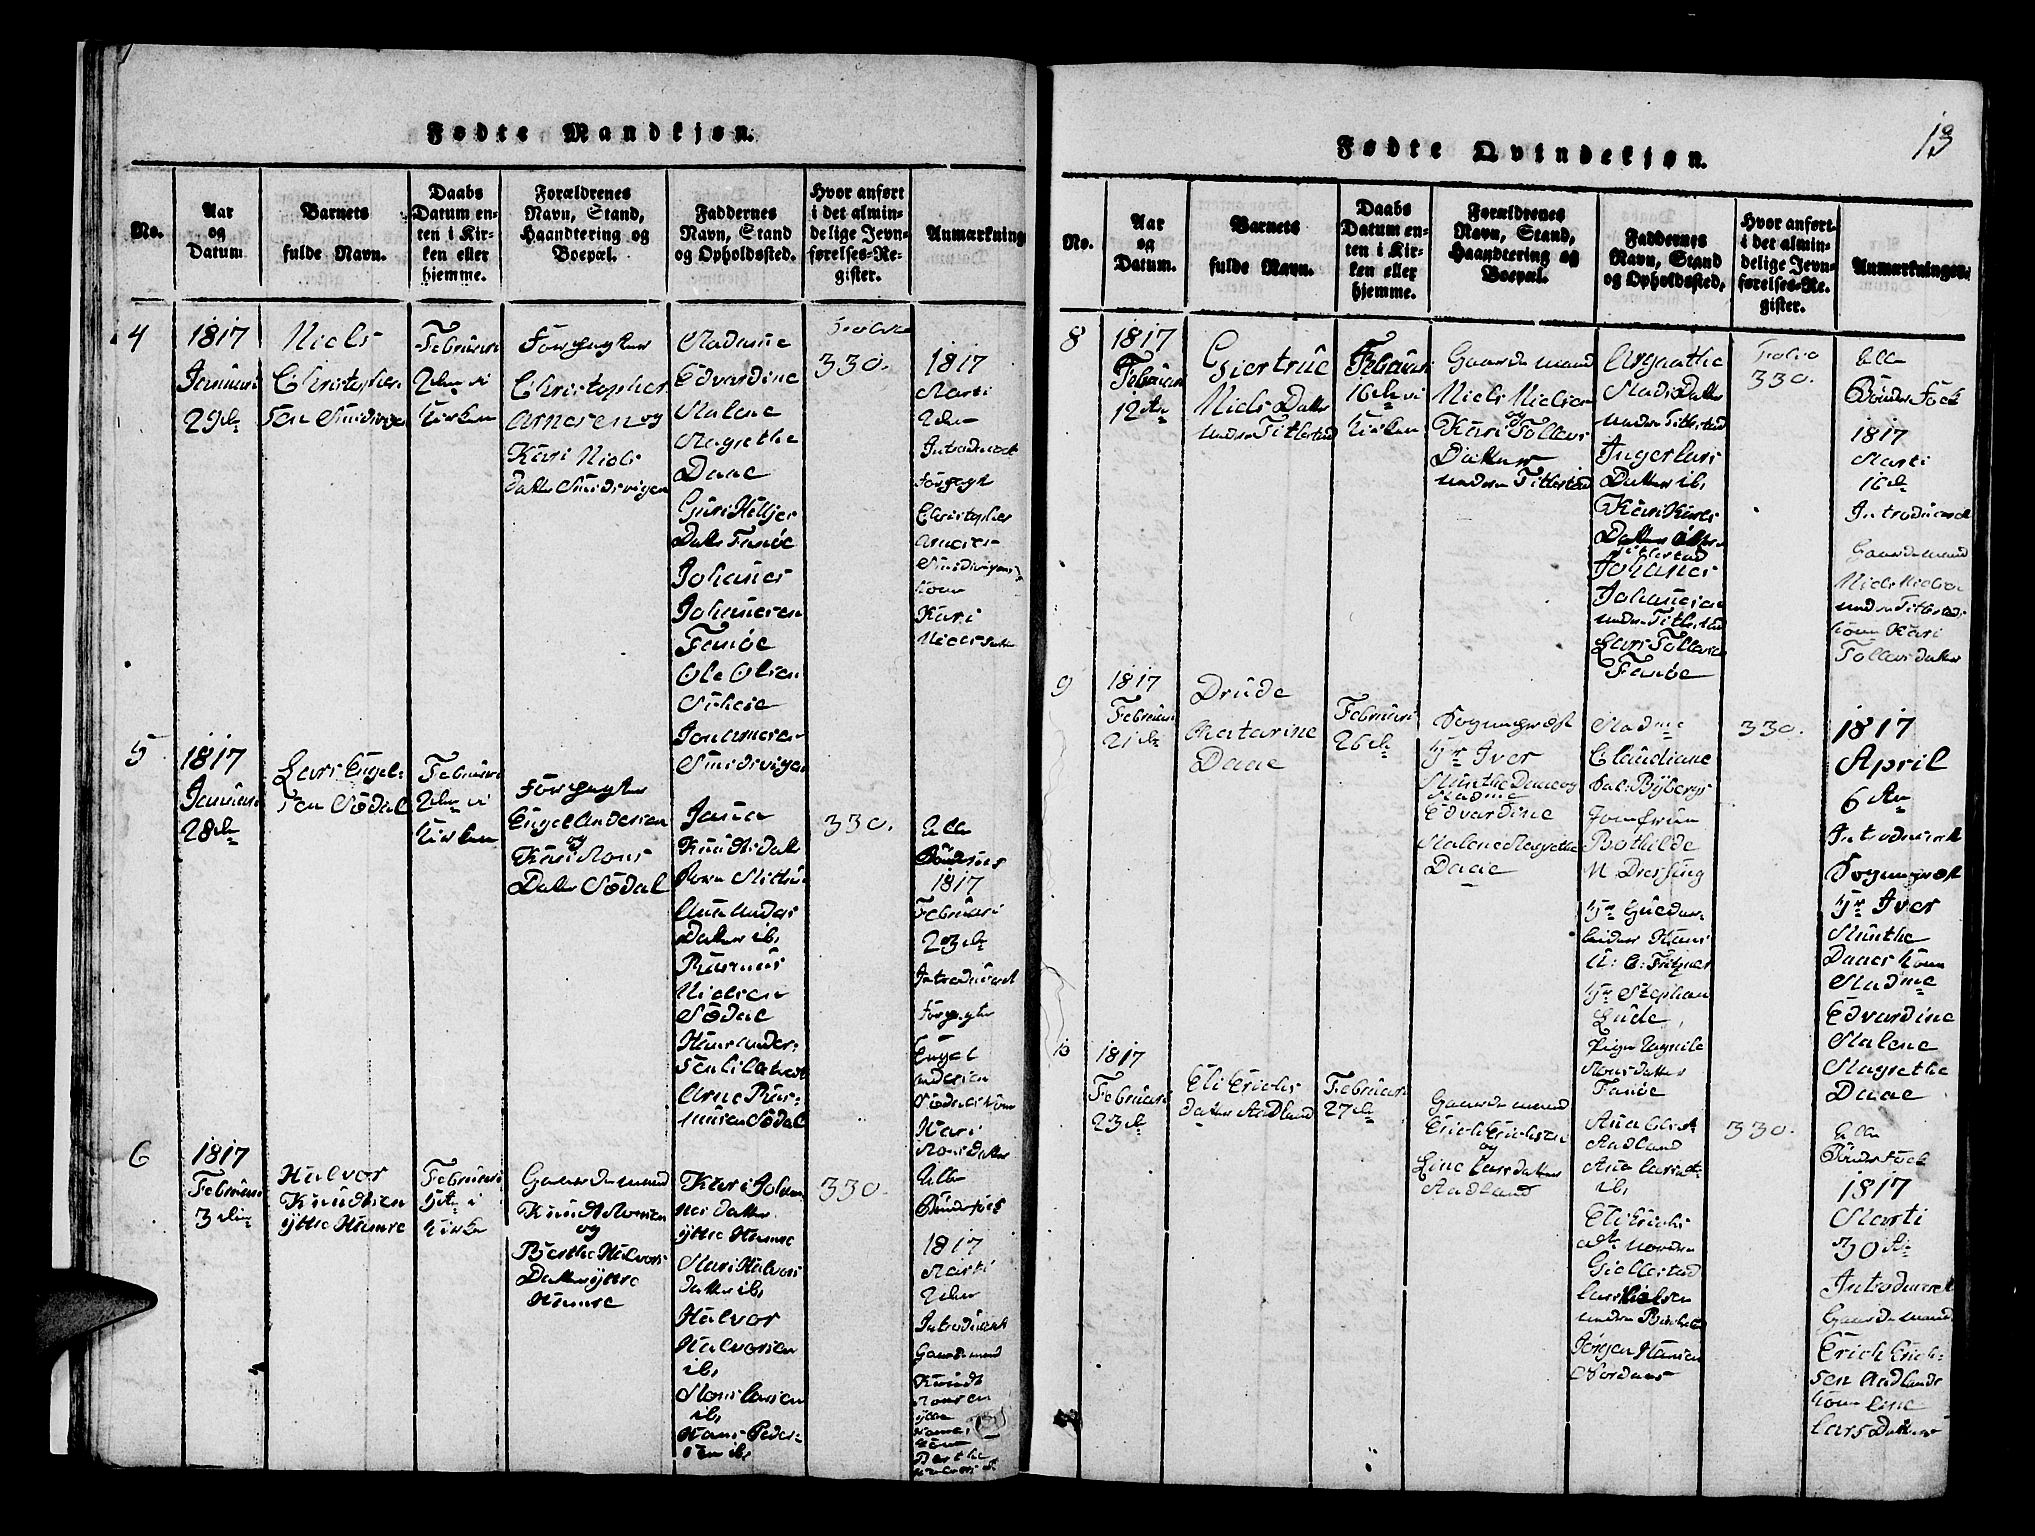 13
Fødte Mandkjøn.
No.
Aar
og
Datum
Barnets
fulde Navn.
Daabs
Datum en-
ten i Kir-
ken eller
hjemme.
Forældrenes
Navn, Stand,
Haandtering og
Boepæl.
Faddernes
Navn, Stand
og Opholdssted.
Hvor anført
i det almin-
delige Jevn-
førelses-Re-
gister.
Anmærkning
4
1817
Januari
29de
Niels
Christopher
sen Smidsvigen
Februari
2den i
Kirken
Forpagter
Christopher
Arnesen og
Kari Niels
datter Smidsvigen
Madame
Edvardine
Malene
Magrethe
Daae
Guri
Datter Fanöe
Johanes
Johanesen
Fanöe
Ole Olsen
Smidsvigen
330.
1817
Marti
2den
Introduceret
Forpagt
Christopher
Arnesen
Smidsvigens
Kone
Kari
Niels Datter
5
1817
Januari
28de
Lars Engel-
sen Södal
Februari
2den i
Kirken
Forpagter
Engel Andersen
og
Kari Mons
Datter Södal
Knudts datt
Anna Anders
Datter ib,
Rasmus
Nielsen
Södal
Arne Ras-
musen Södal
330.
Alle
Bönderfolk
1817
Februari
23de
Introduceret
Forpagter
Engel
Andersen
Södals Kone
Kari
Monsdatter
6
1817
Februari
3die
Halvor
Knudtsen
ÿttre Humre
Februari
i
Kirke
Gaardemand
Knudt Monsen
og
Berthe Halvors
Datter ÿttre
Humre
Kari Johan
nes datter
ÿttre Humre
Mari Halvors
datter ib,
Halvor
Halvorsen
ib,
Mons Larsen
ib,
Hans Peder-
sen ib,
330.
Alle
Bönderfolk
1817
Marti
2den
Introduceret
Gaardemand
Knudt
Monsen
ÿttre
Humres
Kone
Berthe
Halvors d
Fødte Qvindekjøn.
No.
Aar
og
Datum.
Barnets
fulde Navn.
Daabs
Datum en-
ten i Kir-
ken eller
hjemme.
Forældrenes
Navn, Stand,
Haandtering og
Boepæl.
Faddernes
Navn, Stand
og Opholdssted.
Hvor anført
i det almin-
delige Jevn-
førelses-Re-
gister.
Anmærkninger.
8
1817
Februari
12te
Giertrue
Niels Datter
under Titlestad
Februari
16de i
Kirken
Gaardemand
Niels Nielsen
og
Kari Tollevs
Datter
under Titlestad
Argaathe
Mads Datter
under Titlestad
Inger Lars
Datter ib,
Kari
Datter
Titlestad
Johanes
Johanesen
under Titlestad
Lars Tollevsen
Fanöe
Folio
330.
Alle
Bönderfolk
1817
Marti
16de
Introduceret
Gaardemand
Niels Nielsen
under Titlestads
Kone Kari
Tollevs datter
9
1817
Februari
21de
Drude
Katarine
Daae
Februari
26de
Sogneprest
Hr Iver
Munthe Daae og
Madme
Edvardine
Malene Magrethe
Daae
Madme
Claudiane
Sal: Rÿbergs
Jomfrue
Bothilde
M. Dressing
Hr
Hans
Hr Stephan
Lude,
Pige
Monsdatter
Fanöe
330.
1817
April
6te
Introduceret
Sogneprest
Hr Iver
Munthe
Daaes Kone
Madme
Edvardine
Malene
Magrethe
Daae
10
1817
Februari
23de
Eli Erichs
datter Aadland
Februari
27de
Gaardemand
Erich Erichsen
og
Line Lars datter
Aadland
Aadland
ib,
Eli Erichs
Giellestad
Lars Nielsen
under
Jörgen Hansen
330.
Alle
Bönderfolk
1817
Marti
30te
Introduceret
Gaardemand
Erich Erich-
sen Aadlands
Kone Line
Lars Datter